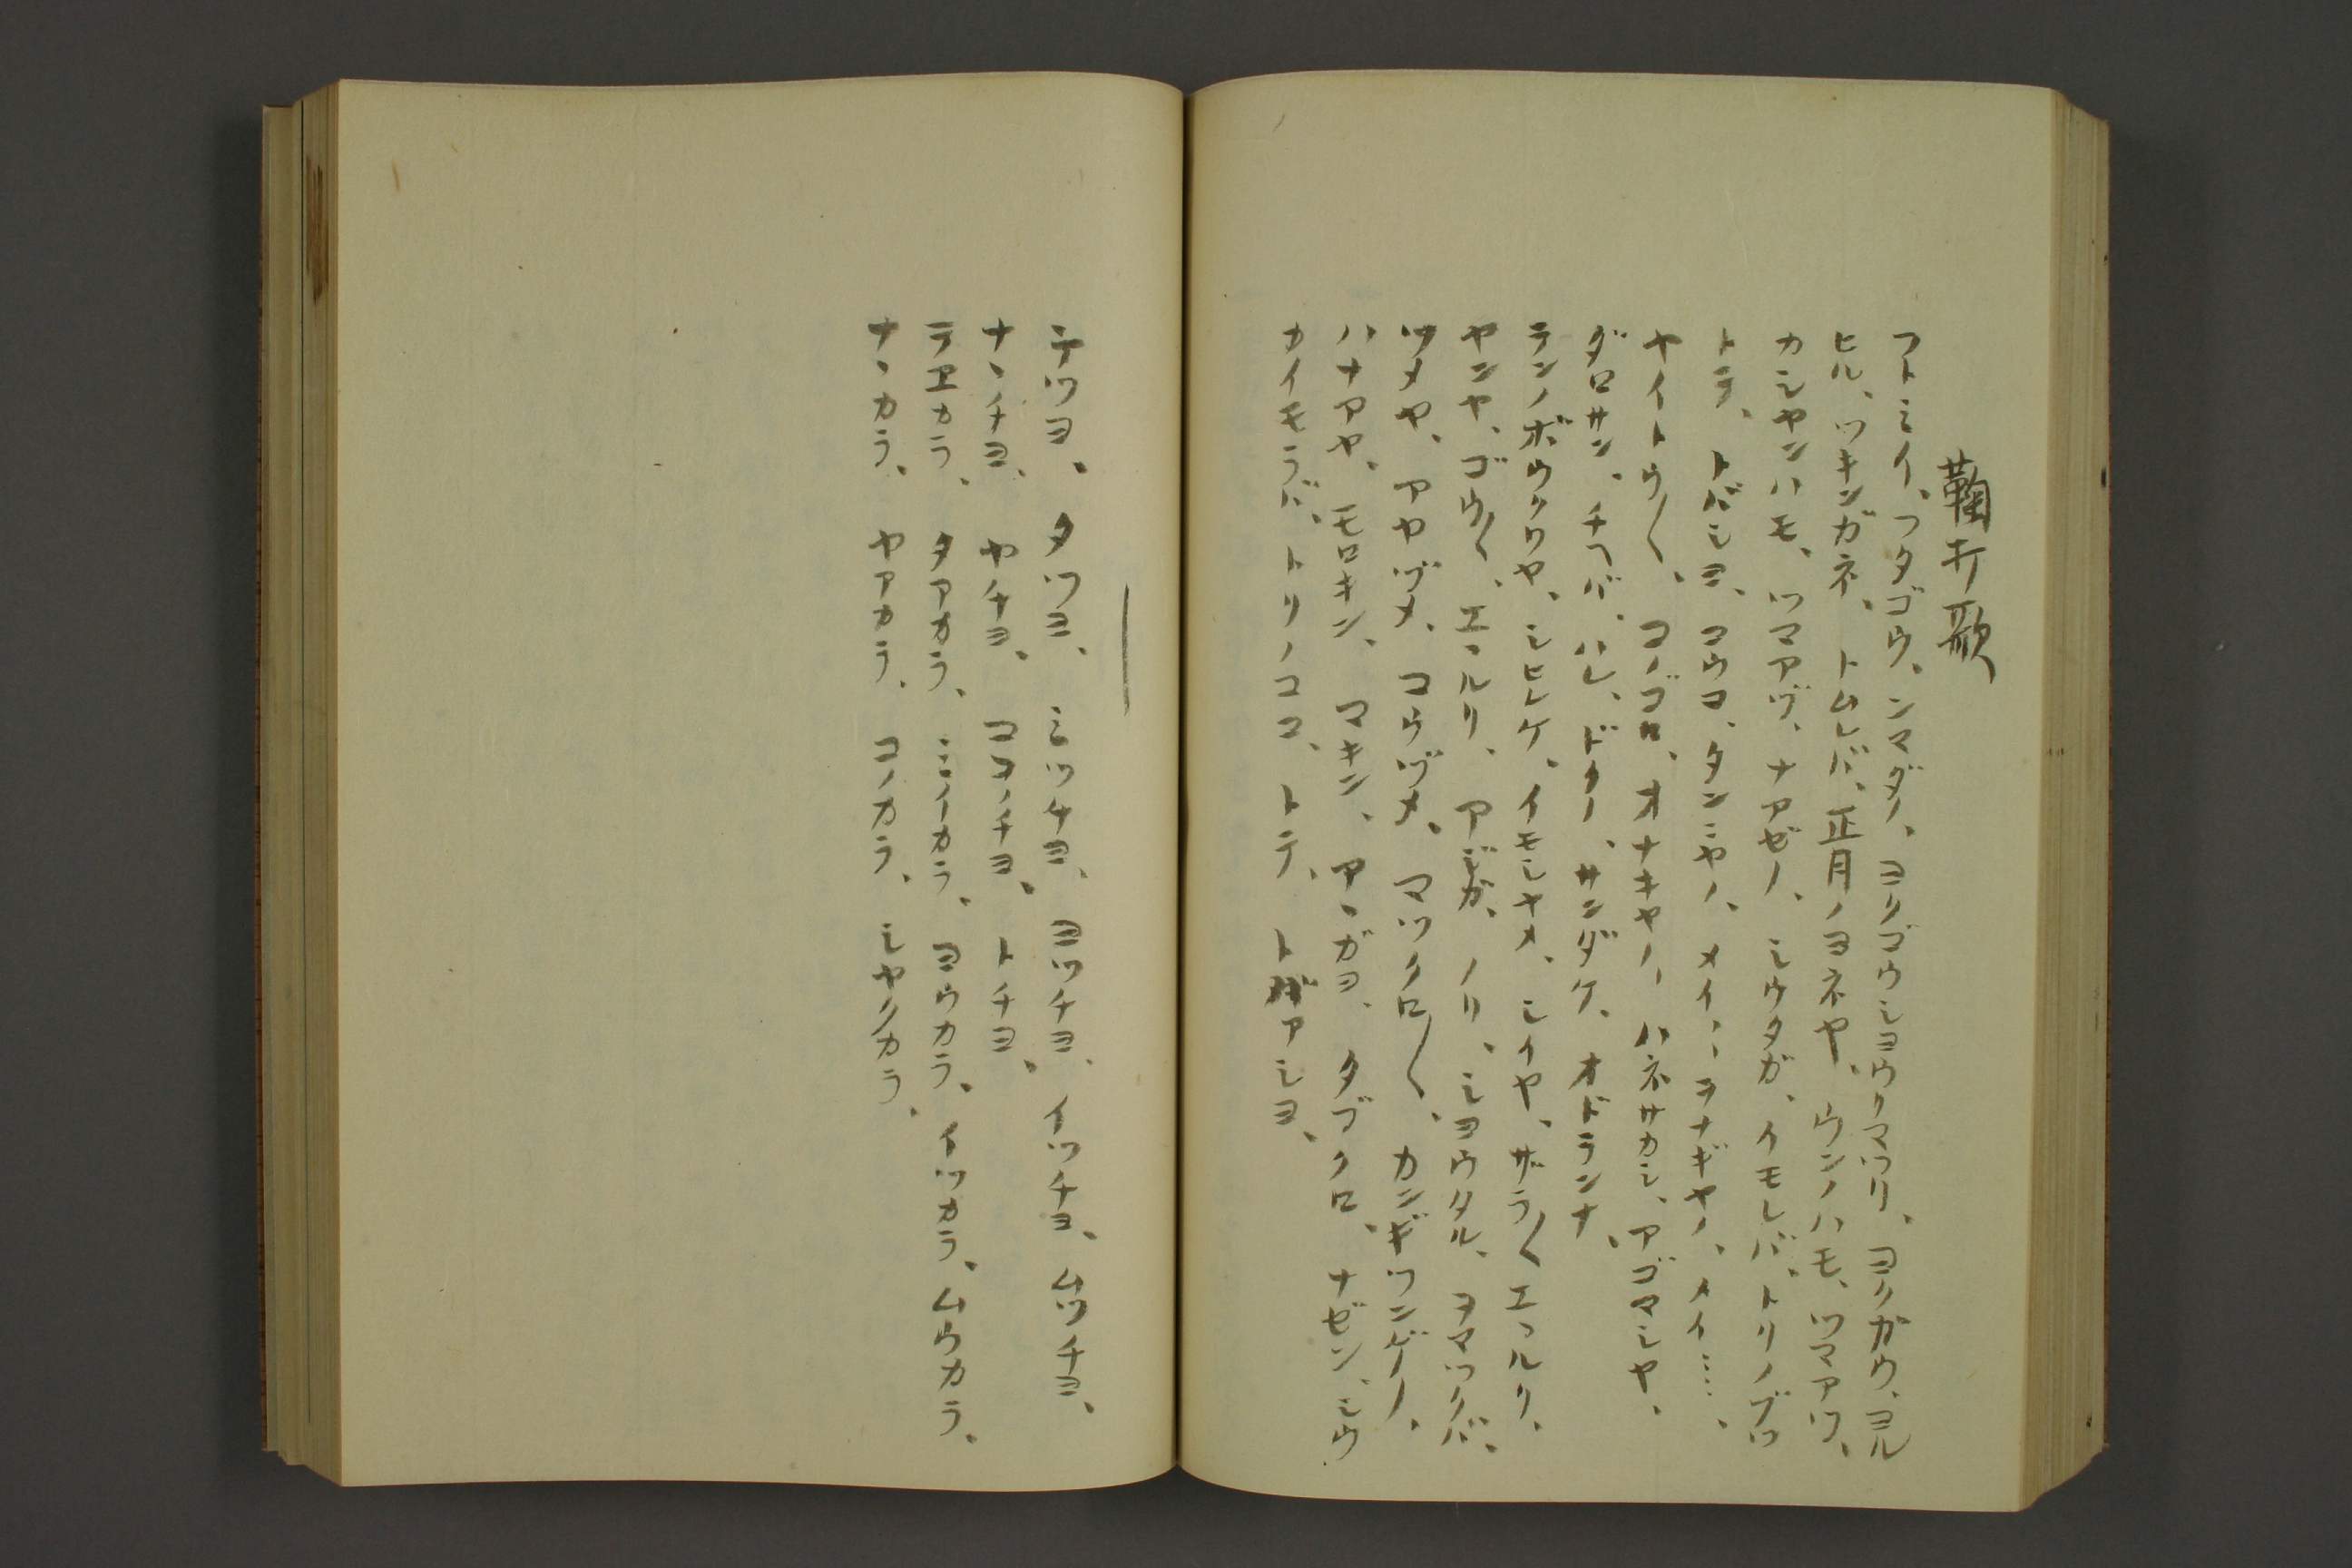 鞠打歌
フトミイ、フタゴウ、ンマダノ、ヨリゴウシヨウクマツリ、ヨリガウ、ヨル
ヒル、ツキンガネ、トムレバ、正月ノヨネヤ、ウンノハモ、ツマアツ、
カシヤンハモ、ツマアヅ、ナアゼノ、シウタガ、イモレバ、トリノブツ
トテ、トバシヨ、コウコ、タンミヤノ、メイ、ヲナギヤノ、メイ……、
ヤイトウ〱、コノゴロ、オナキヤノ、ハネサカシ、アゴマシヤ、
ダロサン、チヘバ、ハレ、ドクノ、サンダケ、オドランナ、
テンノボウクワヤ、シヒレケ、イモシヤメ、シイヤ、ザラ〱エヽルリ、
ヤンヤ、ゴウ〱、エヽルリ、アジガ、ノリ、シヨウタル、ヨマツクバ、
ツメヤ、アヤヅメ、コウヅメ、マツクロ〱、カンギツンゲノ、
ハナアヤ、モロキン、マキン、アヽガヨ、タブクロ、ナゼン、シウ
カイモラバ、トリノココ、トテ、トバアシヨ、
テツヨ、タツヨ、ミツチヨ、ヨツチヨ、イツチヨ、ムツチヨ、
ナヽチヨ、ヤチヨ、ココノチヨ、トチヨ、
テヱカラ、タアカラ、ミイカラ、ヨウカラ、イツカラ、ムウカラ、
ナヽカラ、ヤアカラ、コノカラ、シヤクカラ、